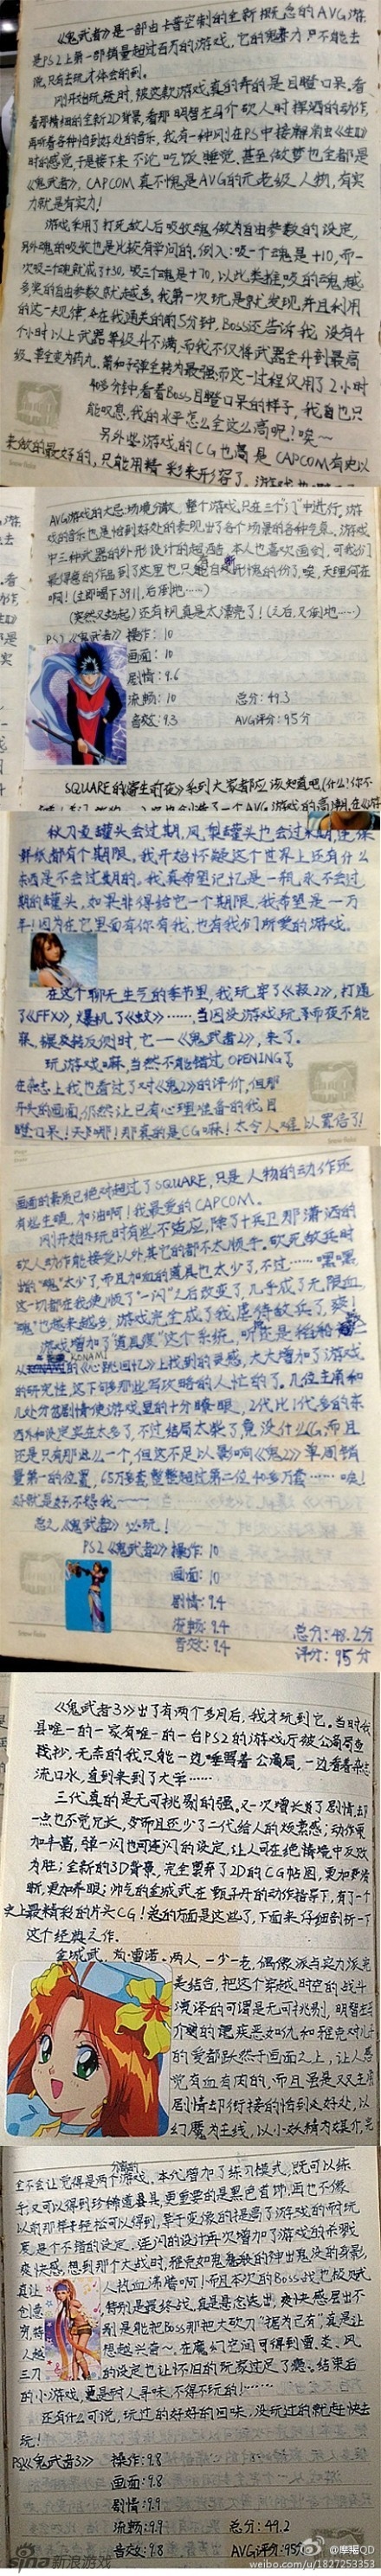 《鬼武者》是一部由卡普空制的全新概念的AVG游
是PS2上第一部销量超过百万的游戏，它的鬼赛才只不能去
说，只有去玩才体会的到。
刚开始玩时，被这款游戏真的弄的是目瞪口呆。看
看那精细的全新2D背景，看那明智左马介砍人时挥洒的动作
再听着各种恰到好处的音乐，我有一种刚在PS中接触
时的感觉，于是接下来不论吃饭睡觉，甚至做梦也全都是
《鬼武者》，CAPCOM真不愧是AVG的元老级人物，有实
力就是有实力！
游戏采用了打死敌人后吸收魂，做为自由参数的设定，
另外魂的吸收也是比较有学问的。例入：吸一个魂是+10，而一
次吸二个魂就成了+30，吸三个魂是+70，以此类推吸的魂越
多买的自由参数就越多，我第一次玩是就发现，并且利用
的这一规律，在我通关的前5分钟，Boss还告诉我没有4
个小时以上武器等级升不满，而我不仅将武器全升到最高
级，草全变为药丸，箭和子弹全转为最强，而这一过程仅用了2小时
40多分钟，看着Boss目瞪口呆的样子，我自也只
能叹息，我的水平怎么全这么高呢？唉～
另外此游戏的CG也高是CAPCOM有史以
来做的最好的，只能用精彩来形容了。
AVG游戏的大忌：场景分散，整个游戏，只在三个"门"中进行，游
戏的音乐也是恰到好处的表现出了各个场景的各种气氛，游戏
中三种武器的外形设计的超酷，本人也喜欢画剑，可我们
最得意的作品到了这里也只能自形愧的份了，唉，天理何在
啊！
(突然又起)还有枫真是太漂亮了！(之后，又倒地……)
PS2《鬼武者》 操作：10
画面：10
剧情：9.6
流畅：10 总分：49.3
音效：9.3 AVG评分：95分
SQUARE的《寄生前夜》系列大家都应该知道吧(什么！你不
秋刀鱼罐头会过期，凤梨罐头也会过期，连保
鲜纸都有个期限，我开始怀疑这个世界上还有什么
东西是不会过期的。我真希望记忆是一瓶永不会过
期的罐头，如果非得给它一个期限，我希望是一万
年！因为在它里面有你有我，也有我们所爱的游戏。
在这个聊无生气的季节里，我玩穿了，打通
了《FFX》，爆机了……，当因没游戏玩而夜不能
寐，辗转反侧时，它—《鬼武者2》，来了。
玩游戏嘛，当然不能错过OPENING了
在杂志上我也看过了对《鬼2》的评价，但那
开头的画面，仍然让已有心理准备的我目
瞪口呆！天哪！那真的是CG嘛！太令人难以置信了！
画面的素质已绝对超过了SQUARE，只是人物的动作还
有些生硬，加油啊！我最爱的CAPCOM。
刚开始玩时有些不适应，除了十兵卫那潇洒的
砍人动作能接受以外其它的都不太顺手。砍死敌兵时
出的"魂"太少了，而且加血的道具也太少了，不过……嘿嘿
这一切都在我使顺了"一闪"之后改变了，几乎成了无限血，
"魂"也越来越多，游戏完全成了我虐待敌兵了，爽！
游戏增加了"道具度"这个系统，听说是稻船
从KONAMI的《心跳回忆》上找到的灵感，大大增加了游戏
的研究性，这下够那些写攻略的人忙的了。几位主角和
几处分岔剧情使游戏里的十分暧昧，2代比1代多的东
西外和设定实在太多了，不过，结局太柴了，竟没什么CG，而且
还是只有那么一个，但这不足以影响《鬼2》单周销
量第一的位置，65万多套整整超过第二位40多万套……唉！
好就是好，不怨我～～
总之，《鬼武者》必玩！
PS2《鬼武者2》操作：10
画面：10
剧情：9.4
流畅：9.4 总分：48.2分
音效：9.4 评分：95分
《鬼武者3》出了有两个多月后，我才玩到它。当时我
县唯一的一家有唯一的一台PS2的游戏厅被公商局查
钱抄，无奈的我只能一边唾骂着公商局，一边看着杂志
流口水，直到来到了大学……
三代真的是无可挑剔的强。又一次增长了剧情，却
一点也不觉冗长，反而且还少了二代给人的烦索感；动作更
加丰富，弹一闪也可连闪的设定，让人可在绝情境中反败
为胜；全新的3D背景，完全罢弃了2D的CG帖图，更加
新，更加养眼；帅气的金城武在甄子丹的动作指导下，有了一个
史上最精彩的片头CG！总的方面是这些了，下面来仔细剖析一下
这个经典之作。
金城武，岚·雷诺，两人，一少一老，偶像派与实力派完
美结合，把这个穿越时空的战斗
演泽的可谓是无可挑剔，明智左马
介嫉恶如仇和雅克对儿子
的爱都跃然于画面之上，让人感
觉有血有肉的，而且虽是双主角
剧情却衔接的恰到处好处，以
幻魔为主线，以小妖精为媒介，完
全不会让觉得是两个分离的游戏。本代增加了练习模式，既可以练
手，又可以得到珍稀道具，更重要的是黑色首饰，再也不像
以前那样轻松可以得到，等于变像的提高了游戏的耐玩
度，是个不错的设定。连闪的设计再次增加了游戏的杀戮
爽快感，想到那个大战时，雅克如鬼魅般的神出鬼没的身影，
真让人热血沸腾啊！而且本次的Boss战也极好
创意特别是最终战，真是悬念迭出，爽快感层出不
穷，特别是能把Boss那把大砍刀"据为己有"真是让
人越想越兴奋～。在魔幻空间可得到雷、炎、风
三刀的设定也让怀旧的玩家过足了瘾。结束后
的小游戏，更是耐人寻味，不得不玩的！……
还有什么可说，玩过的好好的回味，没玩过的就赶快去
玩！
PS2《鬼武者3》 操作：9.8
画面：9.8
剧情：9.9
流畅：9.9 总分：49.2
音效：9.8 AVG评分：95分
sina新浪游戏
@摩羯QD
weibo.com/u/1827253353